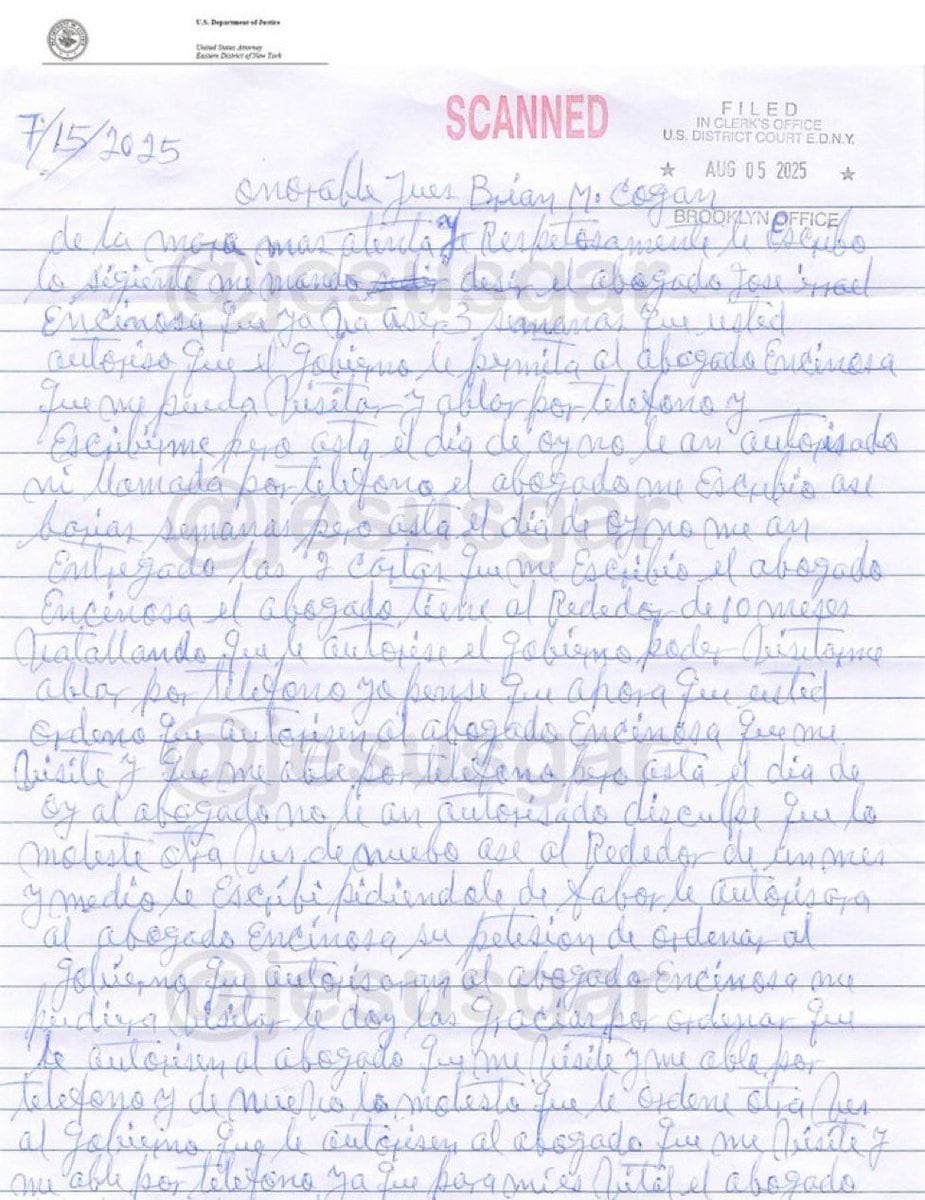 U.S. Department of Justice
United States Attorney
Eastern District of New York
SCANNED
FILED
IN CLERK'S OFFICE
U.S. DISTRICT COURT E.D.N.Y.
★ AUG 05 2025 ★
BROOKLYN OFFICE
7/15/2025
onorable Jues Brian M. Cogan
de la mas atenta y Respetosamente le Escribo
lo sigiente me mando desir el abogado Jose
Encinosa que ya ba aser 3 semanas que usted
autoriso que el gobierno le permita al abogado Encinosa
que me pueda Visitar y ablar por telefono y
Escribirme pero asta el dia de oy no le an autorisado
ni llamada por telefono el abogado me Escribio ase
barias semanas pero asta el dia de oy no me an
Entregado las cartas que me Escribio el abogado
Encinosa el abogado tiene al Rededor de 10 meses
Vatallando que le autorise el gobierno poder Visitarme
ablar por telefono yo pense que ahora que usted
ordeno que autorisen al abogado Encinosa que me
Visite y que me able por telefono pero asta el dia de
oy al abogado no le an autorisado disculpe que lo
moleste otra Ves de nuebo ase al Rededor de un mes
y medio le Escribi pidiendole de fabor le autorisara
al abogado Encinosa su petision de ordenar al
gobierno que autorisaran al abogado Encinosa me
pudiera Visitar le doy las gracias por ordenar que
le autorisen al abogado que me Visite y me able por
telefono y de nuebo lo molesto que le ordene otra Ves
al gobierno que le autorisen al abogado que me Visite y
me able por telefono ya que para mi es Vital el abogado
@jesusgar
@jesusgar
@jesusgar
@jesusgar